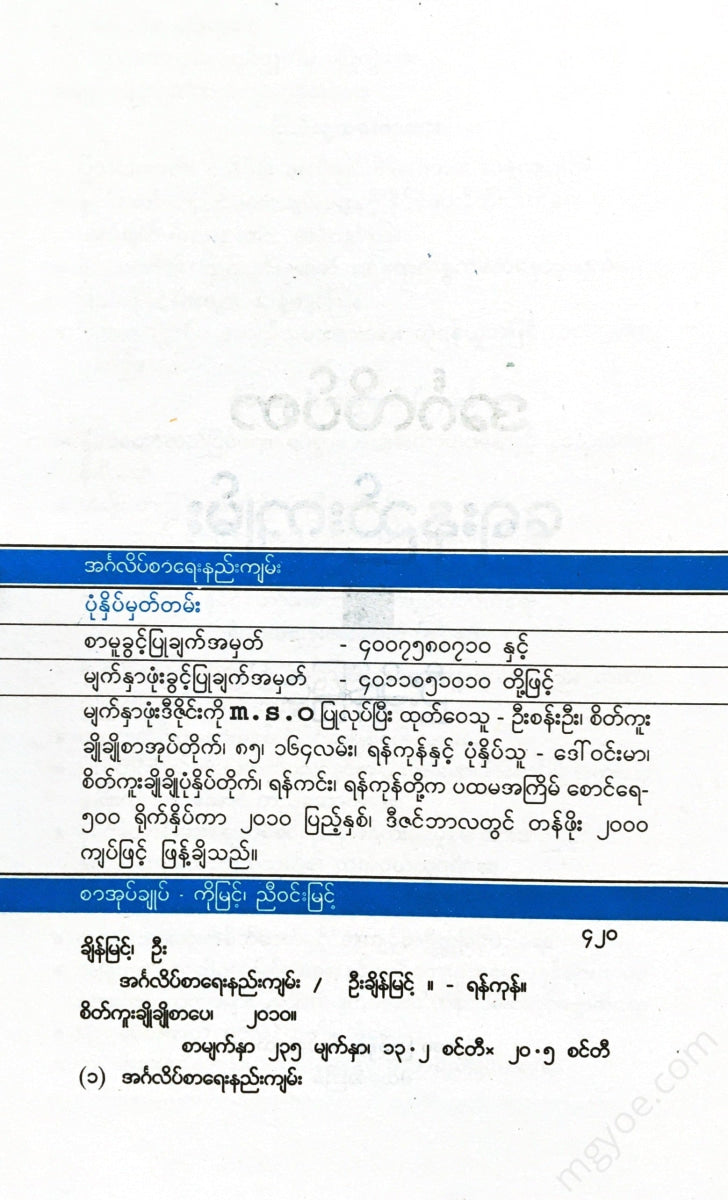 အင်္ဂလိပ်စာရေးနည်းကျမ်း
ပုံနှိပ်မှတ်တမ်း
စာမူခွင့်ပြုချက်အမှတ် - ၄၀၀၇၅၈၀၇၁၀ နှင့်
မျက်နှာဖုံးခွင့်ပြုချက်အမှတ် - ၄၀၁၁၀၅၁၀၁၀ တို့ဖြင့်
မျက်နှာဖုံးဒီဇိုင်းကို m.s.o ပြုလုပ်ပြီး ထုတ်ဝေသူ - ဦးစန်းဦး၊ စိတ်ကူး
ချိုချိုစာအုပ်တိုက်၊ ၈၅၊ ၁၆၄လမ်း၊ ရန်ကုန်နှင့် ပုံနှိပ်သူ - ဒေါ်ဝင်းမာ၊
စိတ်ကူးချိုချိုပုံနှိပ်တိုက်၊ ရန်ကင်း၊ ရန်ကုန်တို့က ပထမအကြိမ် စောင်ရေ-
၅၀၀ ရိုက်နှိပ်ကာ ၂၀၁၀ ပြည့်နှစ်၊ ဒီဇင်ဘာလတွင် တန်ဖိုး ၂၀၀၀
ကျပ်ဖြင့် ဖြန့်ချိသည်။
စာအုပ်ချုပ် - ကိုမြင့်၊ ညီဝင်းမြင့်
၄၂၀
ချိန်မြင့်၊ ဦး
အင်္ဂလိပ်စာရေးနည်းကျမ်း / ဦးချိန်မြင့် ။ - ရန်ကုန်။
စိတ်ကူးချိုချိုစာပေ၊ ၂၀၁၀။
စာမျက်နှာ ၂၃၅ မျက်နှာ၊ ၁၃.၂ စင်တီ× ၂၀.၅ စင်တီ
(၁) အင်္ဂလိပ်စာရေးနည်းကျမ်း
mgyoe.com